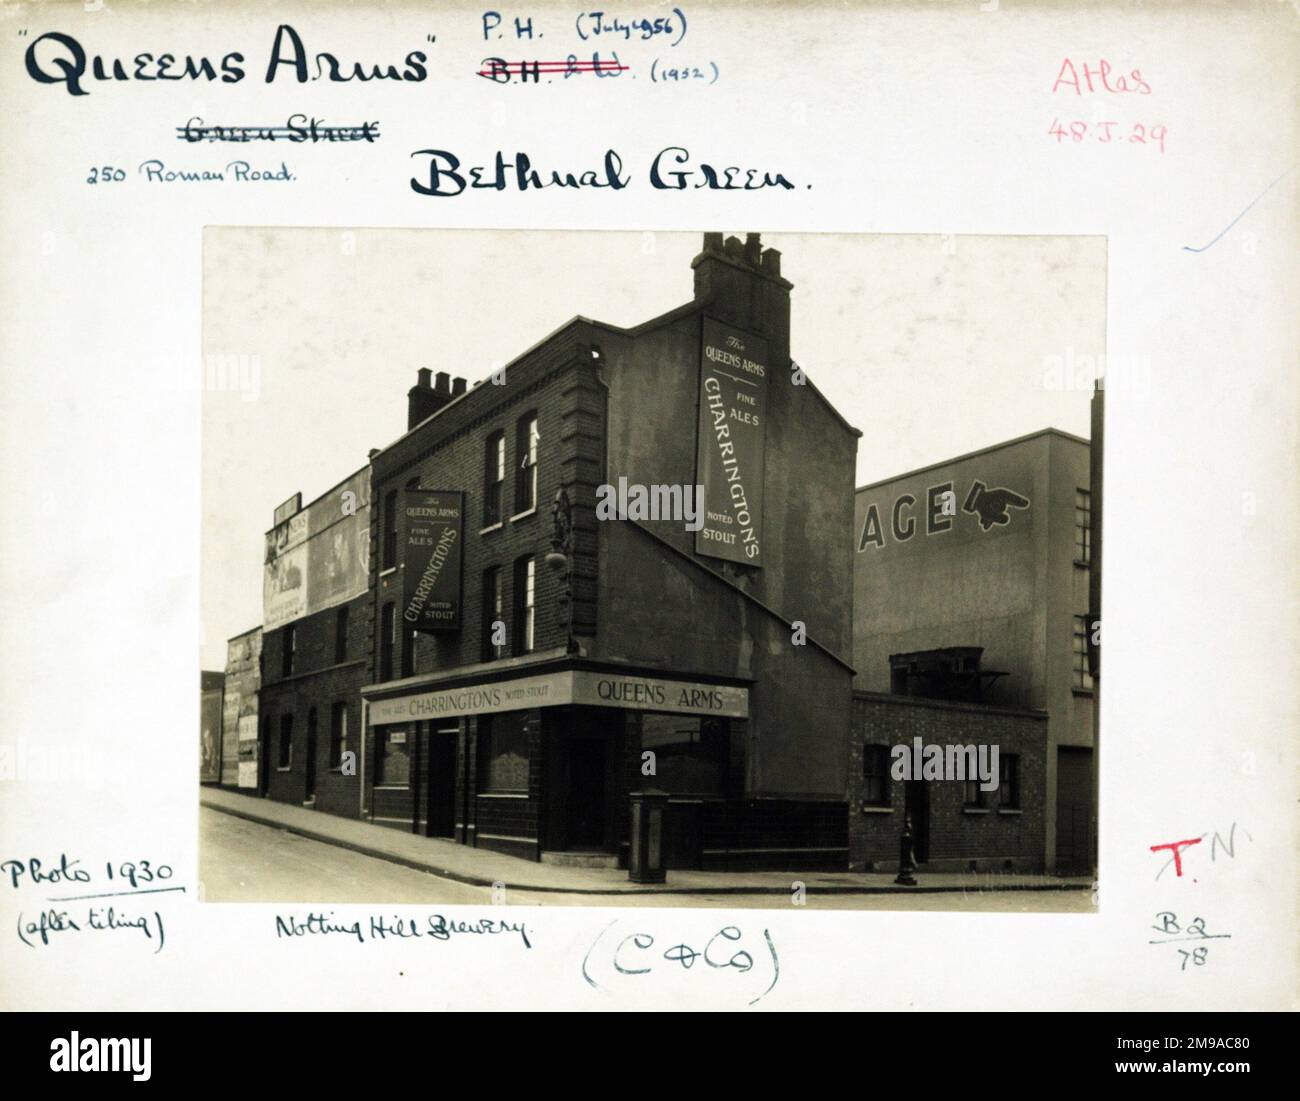 "Queens Arms" P.H. (July 1956)
B.H. & W. (1932)
Atlas
48.J.29
Green Street
250 Roman Road.
Bethnal Green.
The
QUEEN'S ARMS
FINE
ALES
CHARRINGTON'S
NOTED
STOUT
The
QUEENS ARMS
FINE
ALES
CHARRINGTON'S
NOTED
STOUT
AGE
FINE ALES CHARRINGTON'S NOTED STOUT
QUEENS ARMS
Photo 1930
(after tiling)
Notting Hill Brewery.
(C & Co)
T. N
B2
78
alamy
alamy
Image ID: 2M9AC80
www.alamy.com